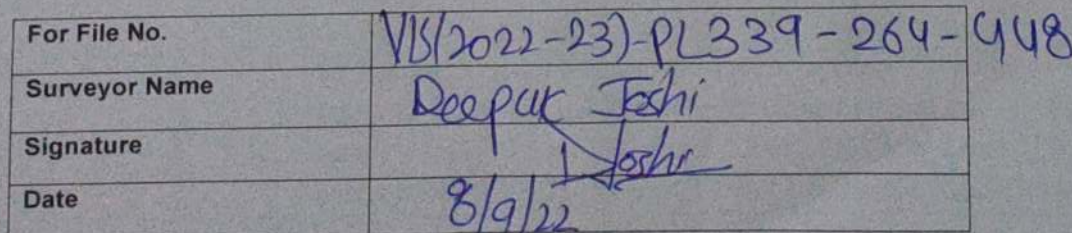 For File No. VIS(2022-23)-PL339-264-448
Surveyor Name Deepak Joshi
Signature DJoshi
Date 8/9/22